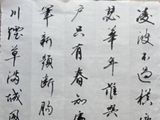 凌波不過橫
瑟華年誰與
户只有春知
筆新題斷腸
川煙草滿城風